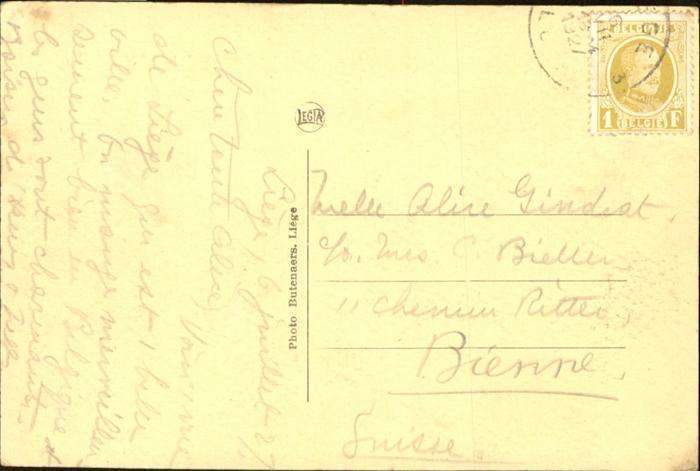 Liège, 6 juillet 27
Chère tante Alice, Vous
de Liège qui est 1 belle
ville. On mange merveilleu-
sement bien en Belgique &
les gens sont charmants.
LEGIA
Photo Butenaers. Liége
BELGIQUE
1 F
BELGIE
Melle Alice Gindrat.
c/o. Mrs. Bieller
11 Chemin Ritter
Bienne.
Suisse.